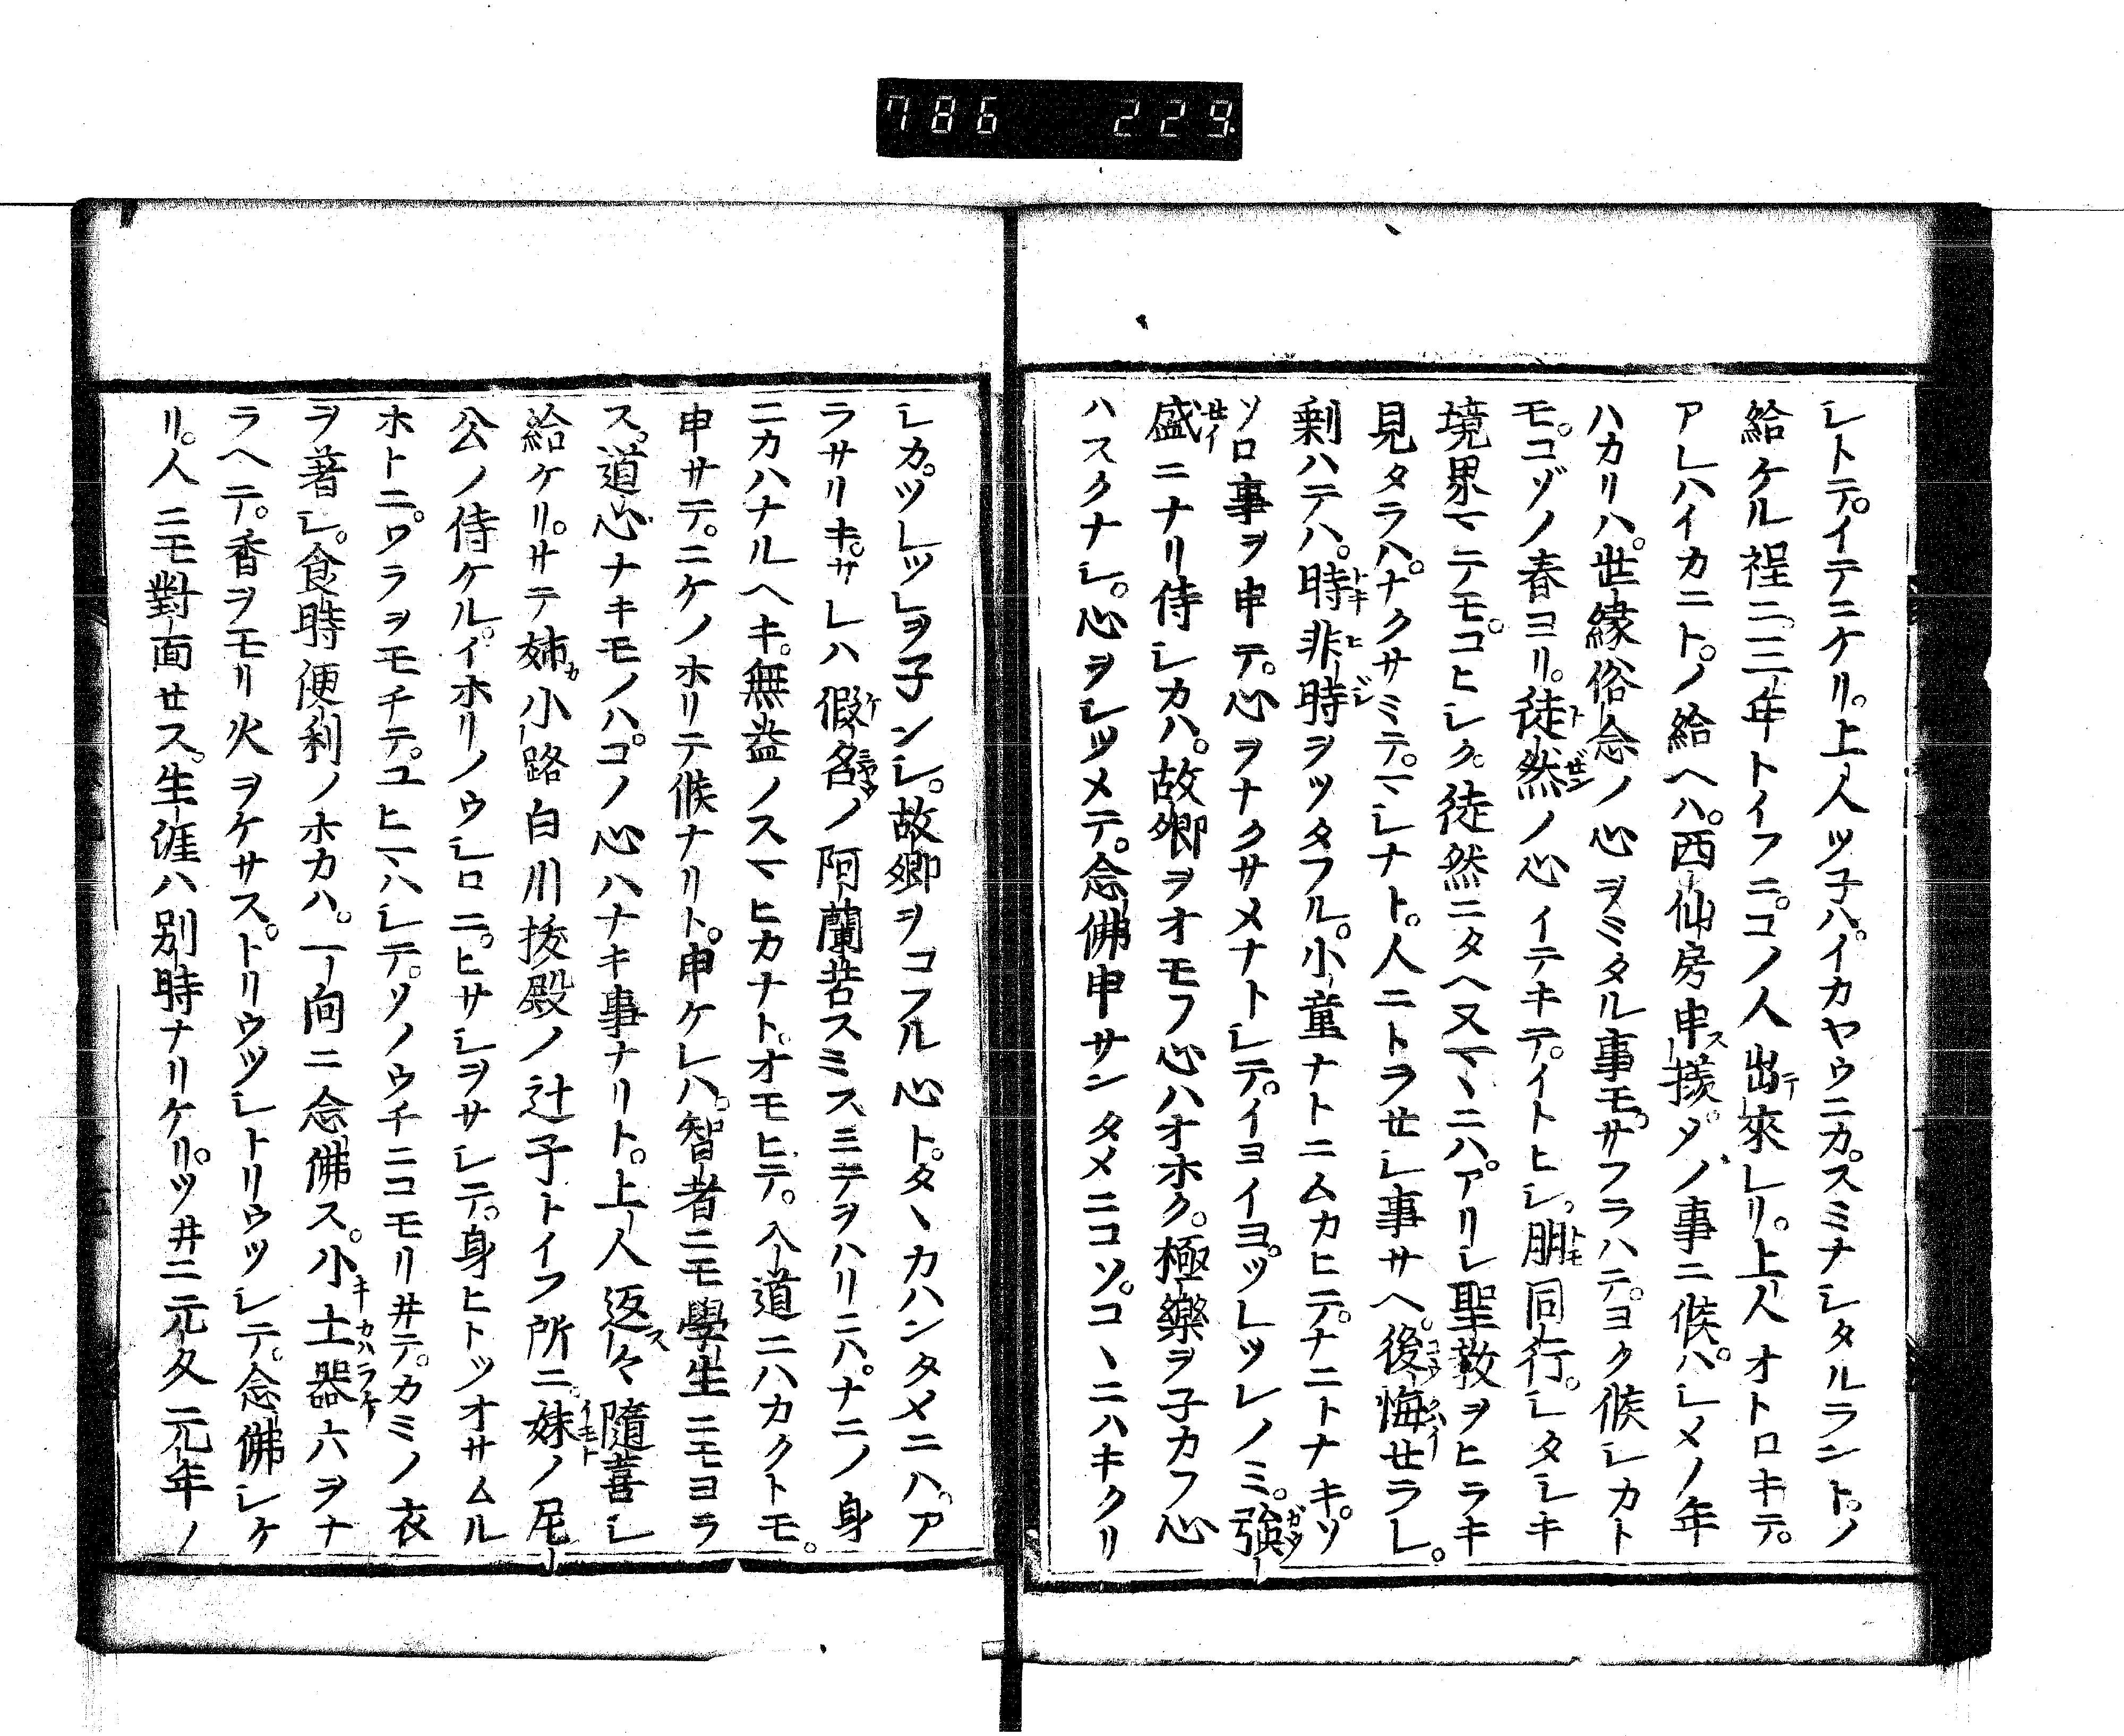 786 229
シトテ。イテニケリ。上人ツ子ハ。イカヤウニカ。スミナレタルラント。ノ
給ケル程ニ。二三年トイフニ。コノ人出來レリ。上人オトロキテ。
アレハイカニト。ノ給ヘハ。西仙房申ス樣。ソノ事ニ候。ハシメノ年
ハカリハ。世縁俗念ノ心ヲミタル事モ。サフラハテ。ヨク候シカト
モ。コソノ春ヨリ。徒然ノ心イテキテ。イトヒシ。朋同行。シタシキ
境界マテモ。コヒシク。徒然ニタヘヌマヽニハ。アリシ聖教ヲヒラキ
見タラハ。ナクサミテ。マシナト。人ニトラセシ事サヘ。後悔セラレ。
剰ハテハ。時非時ヲツタフル。小童ナトニムカヒテ。ナニトナキ。ソ
ソロ事ヲ申テ。心ヲナクサメナトシテ。イヨイヨ。ツレツレノミ。強
盛ニナリ侍シカハ。故郷ヲオモフ心ハオホク。極樂ヲ子カフ心
ハスクナシ。心ヲシツメテ。念佛申サンタメニコソ。コヽニハキクリ
シカ。ツレツレヲ子ンシ。故郷ヲコフル心ト。タヽカハンタメニハ。ア
ラサリキ。サレハ假名ノ阿蘭若スミスミテヲハリニハ。ナニノ身
ニカハナルヘキ。無益ノスマヒカナト。オモヒテ。入道ニハカクトモ。
申サテ。ニケノホリテ候ナリト。申ケレハ。智者ニモ學生ニモヨラ
ス。道心ナキモノハ。コノ心ハナキ事ナリト。上人返々隨喜シ
給ケリ。サテ姉小路白川挍殿ノ辻子トイフ所ニ。妹ノ尼
公ノ侍ケル。イホリノウシロニ。ヒサシヲサシテ。身ヒトツオサムル
ホトニ。ワラヲモチテ。ユヒマハシテ。ソノウチニコモリ井テ。カミノ衣
ヲ著シ。食時便利ノホカハ。一向ニ念佛ス。小土器六ヲナ
ラヘテ。香ヲモリ火ヲケサス。トリウツシトリウツシテ。念佛シケ
リ。人ニモ對面セス。生涯ハ別時ナリケリ。ツ井ニ元久元年ノ